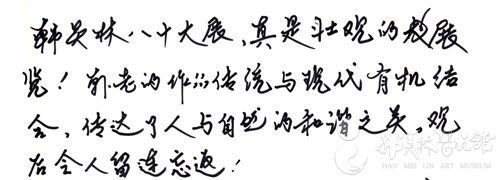 韩美林八十大展,真是壮观的艺展
览!韩老的作品传统与现代有机结
合,传达了人与自然的和谐之美,观
后令人留连忘返!
韩美林艺术馆
HAN MEI LIN ART MUSEUM